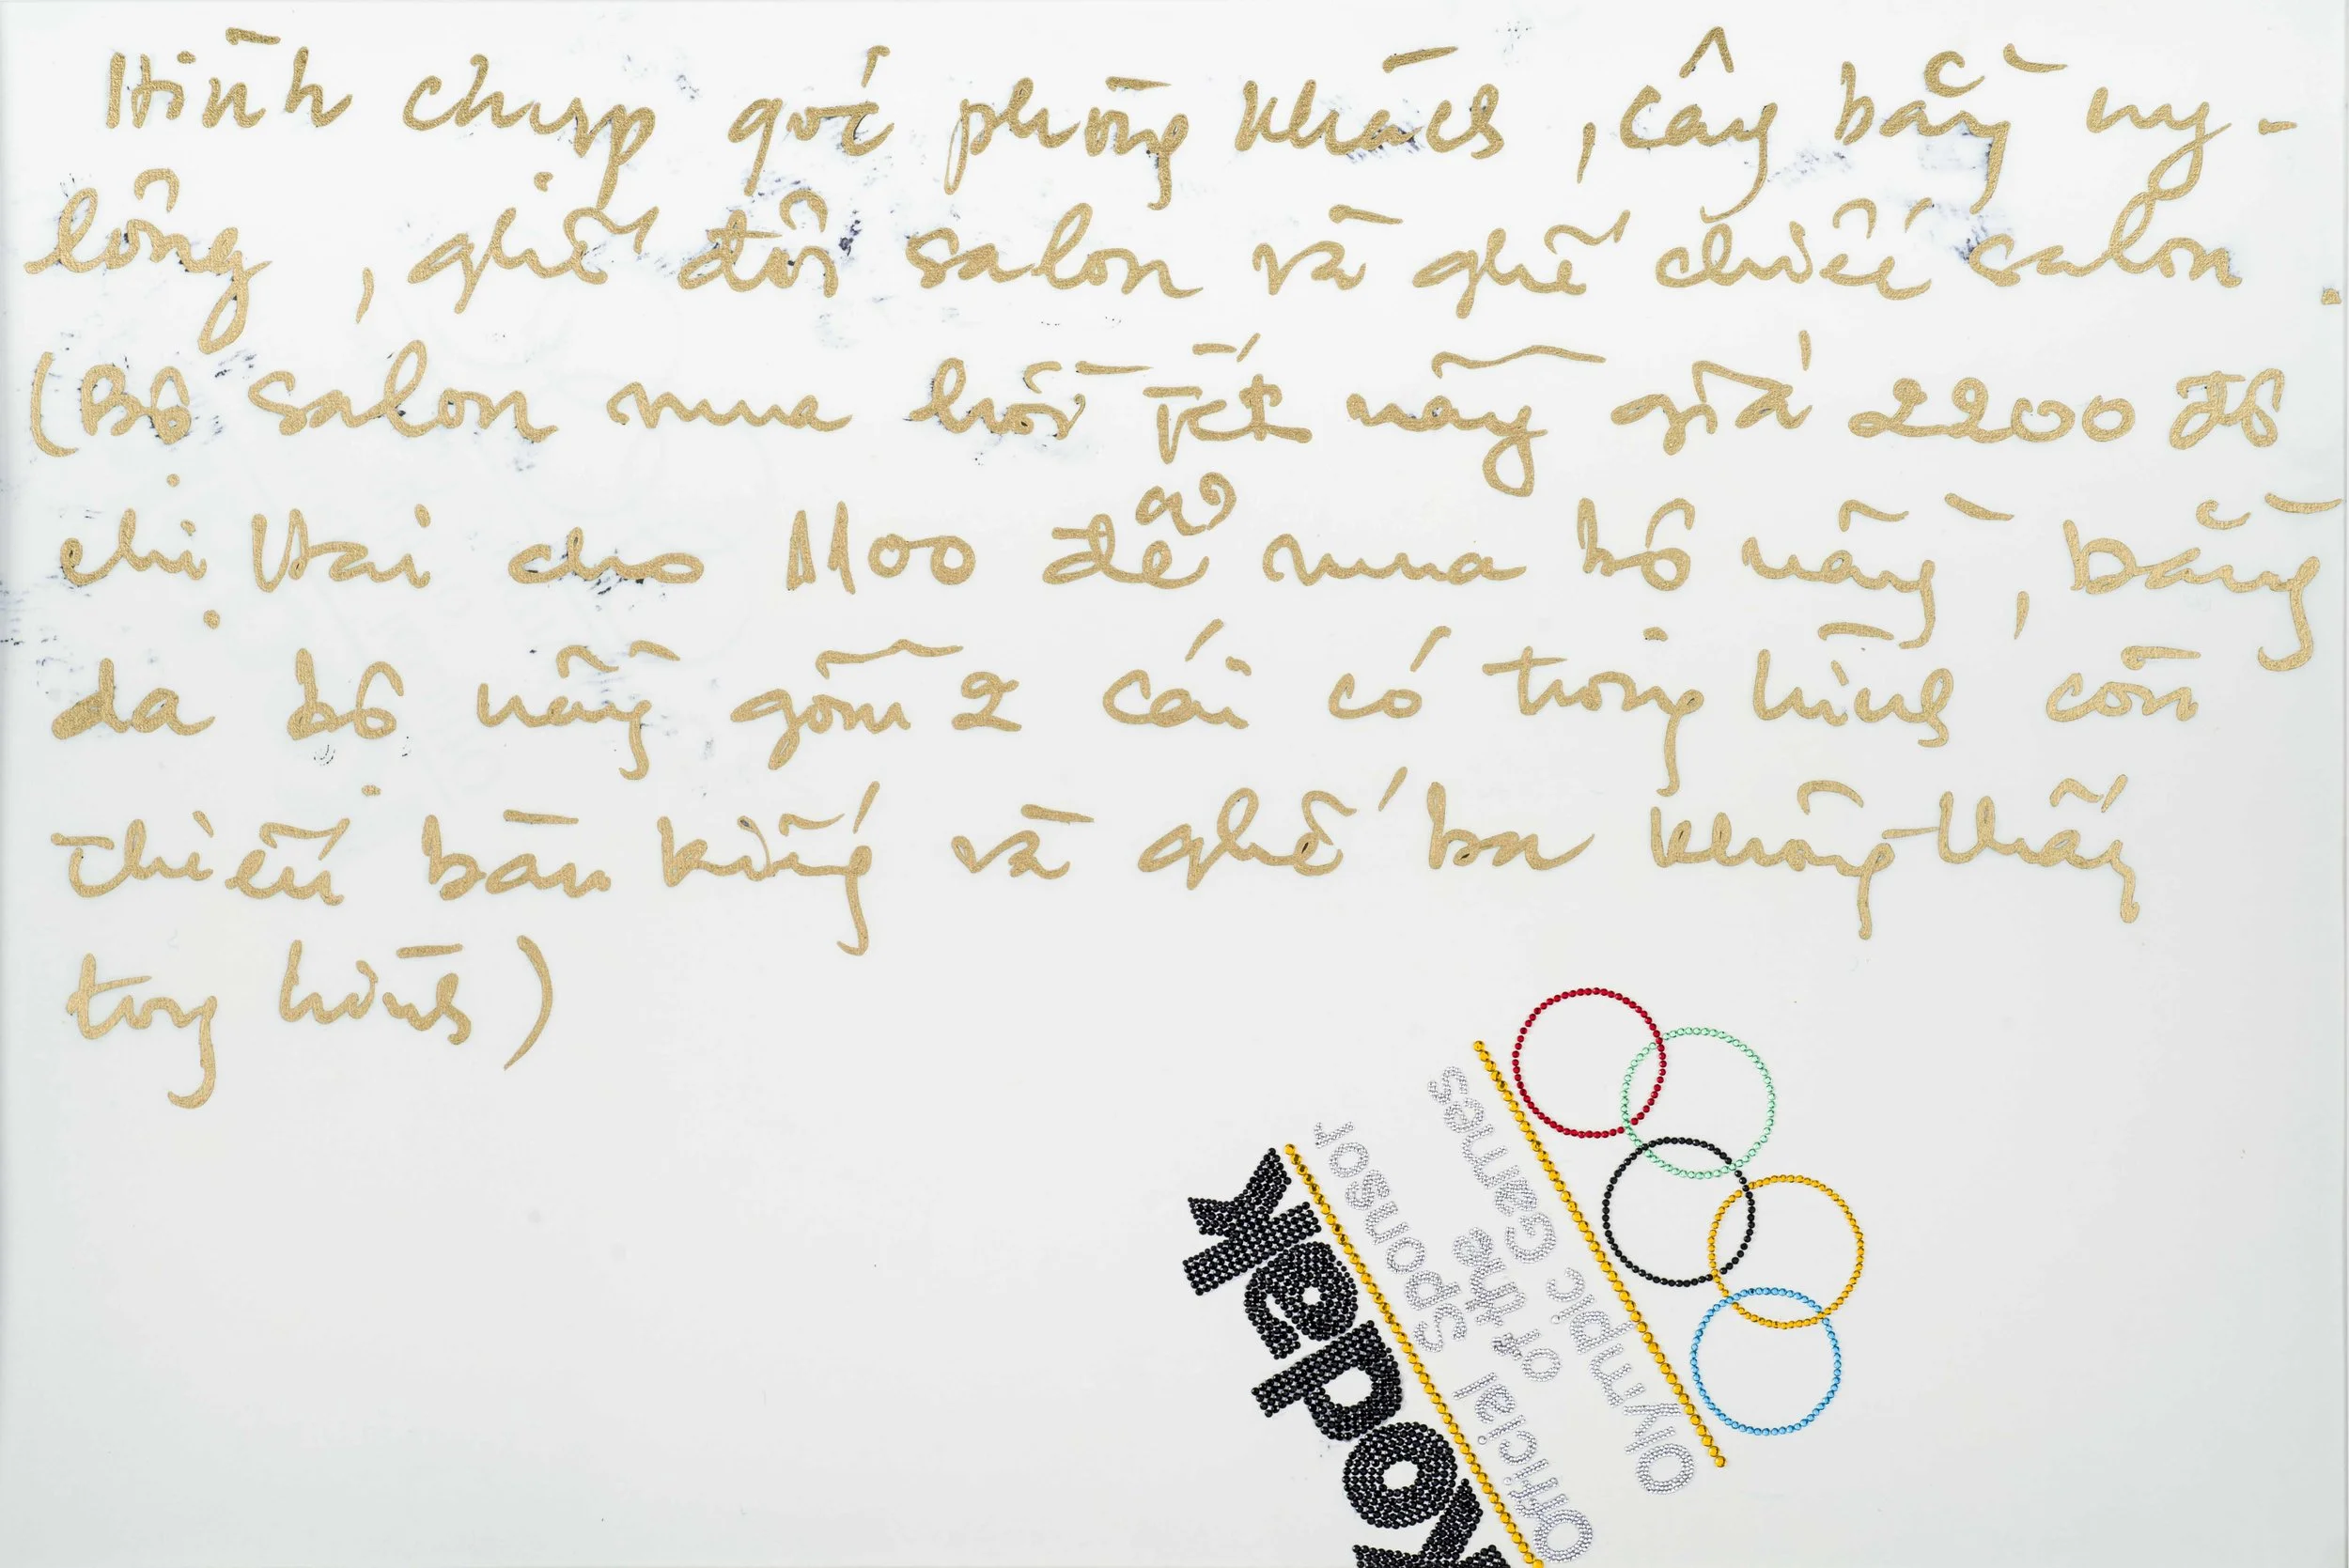 Hình chụp góc phòng khách, cây bằng ny-
lông, ghế đôi salon và ghế chiếc salon.
(Bộ salon mua hồi Tết nầy giá 2200 đô
chị Hai cho 1100 để mua bộ nầy, bằng
da bộ nầy gồm 2 cái có trong hình còn
thiếu bàn kiếng và ghế ba không thấy
trong hình)
Olympic Games
of the
Official Sponsor
Kodak